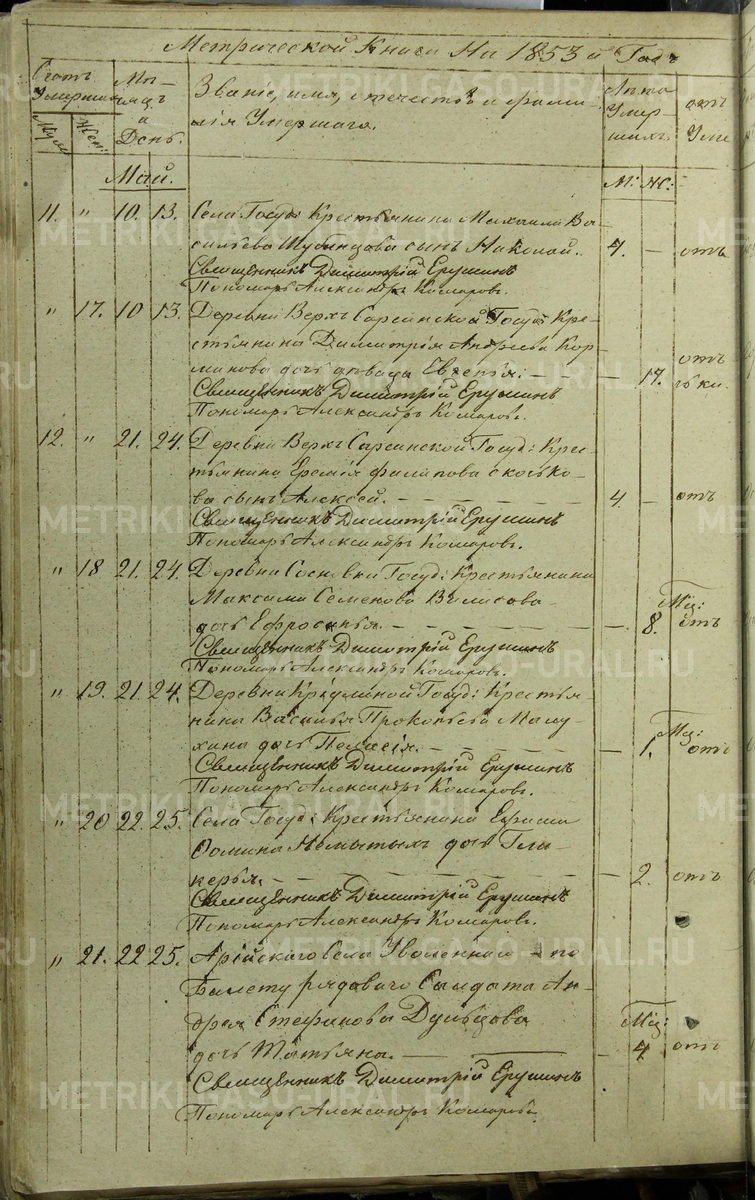 Метрической Книги На 1853й Годъ
Счетъ Умершихъ
Муж: Жен:
Мѣсяцъ и День.
Званіе, имя, отечество и фамилія Умершаго.
Лѣта Умершихъ
М: Ж:
отъ
Уме
Май.
11. " 10. 13. Села Госуд: Крестьянина Михаила Васильева сынъ Николай. 4. — отъ
Священникъ Димитрій Ерушинъ
Пономарь Александръ Комаровъ.
" 17. 10 13. Деревни Верхъ Сарсинской Госуд: Крестьянина Димитрія Андреева дочь Евгенія. — 17. отъ
Священникъ Димитрій Ерушинъ
Пономарь Александръ Комаровъ.
12. " 21. 24. Деревни Верхъ Сарсинской Госуд: Крестьянина Еремія Филипова сынъ Алексей. 4 — отъ
Священникъ Димитрій Ерушинъ
Пономарь Александръ Комаровъ.
" 18 21. 24. Деревни Сосновки Госуд: Крестьянина Максима Семенова Вилисова дочь Ефросинья. — 8. Мц: отъ
Священникъ Димитрій Ерушинъ
Пономарь Александръ Комаровъ.
" 19. 21. 24. Деревни Госуд: Крестьянина Василья Прокопьева дочь Пелагія. — 1. Мц: отъ
Священникъ Димитрій Ерушинъ
Пономарь Александръ Комаровъ.
" 20 22. 25. Села Госуд: Крестьянина Ефима Фомина Немытыхъ дочь Гликерья. — 2. отъ
Священникъ Димитрій Ерушинъ
Пономарь Александръ Комаровъ.
" 21. 22 25. Арійскаго Села Уволеннаго по Билету рядоваго Солдата Андрея Стефанова дочь Татьяна. — 4 Мц: отъ
Священникъ Димитрій Ерушинъ
Пономарь Александръ Комаровъ
METRIKI.GASO-URAL.RU